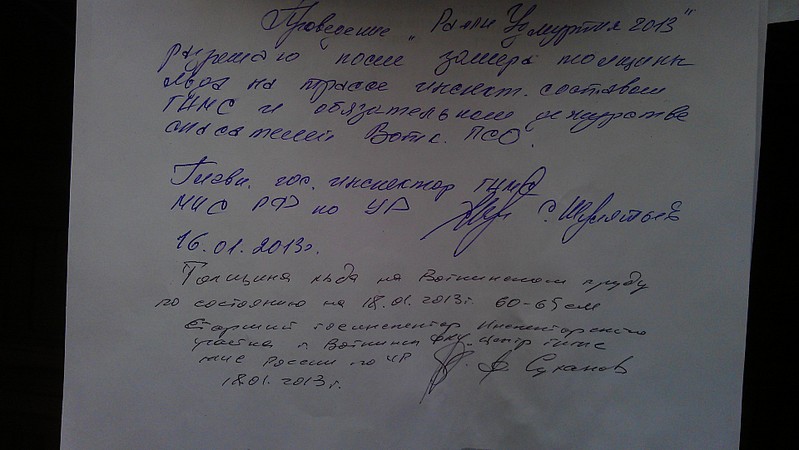 Проведение „Ралли Удмуртия 2013"
разрешаю после замера толщины
льда на трассе инспект. составом
ГИМС и обязательном дежурстве
спасателей Вотк. ПСО.
Главн. гос. инспектор ГИМС
МЧС РФ по УР С.
16.01.2013г.
Толщина льда на Воткинском пруду
по состоянию на 18.01.2013г. 60-65см
Старший госинспектор Инспекторского
участка г Воткинск ФКУ „Центр ГИМС
МЧС России по УР
18.01.2013г.